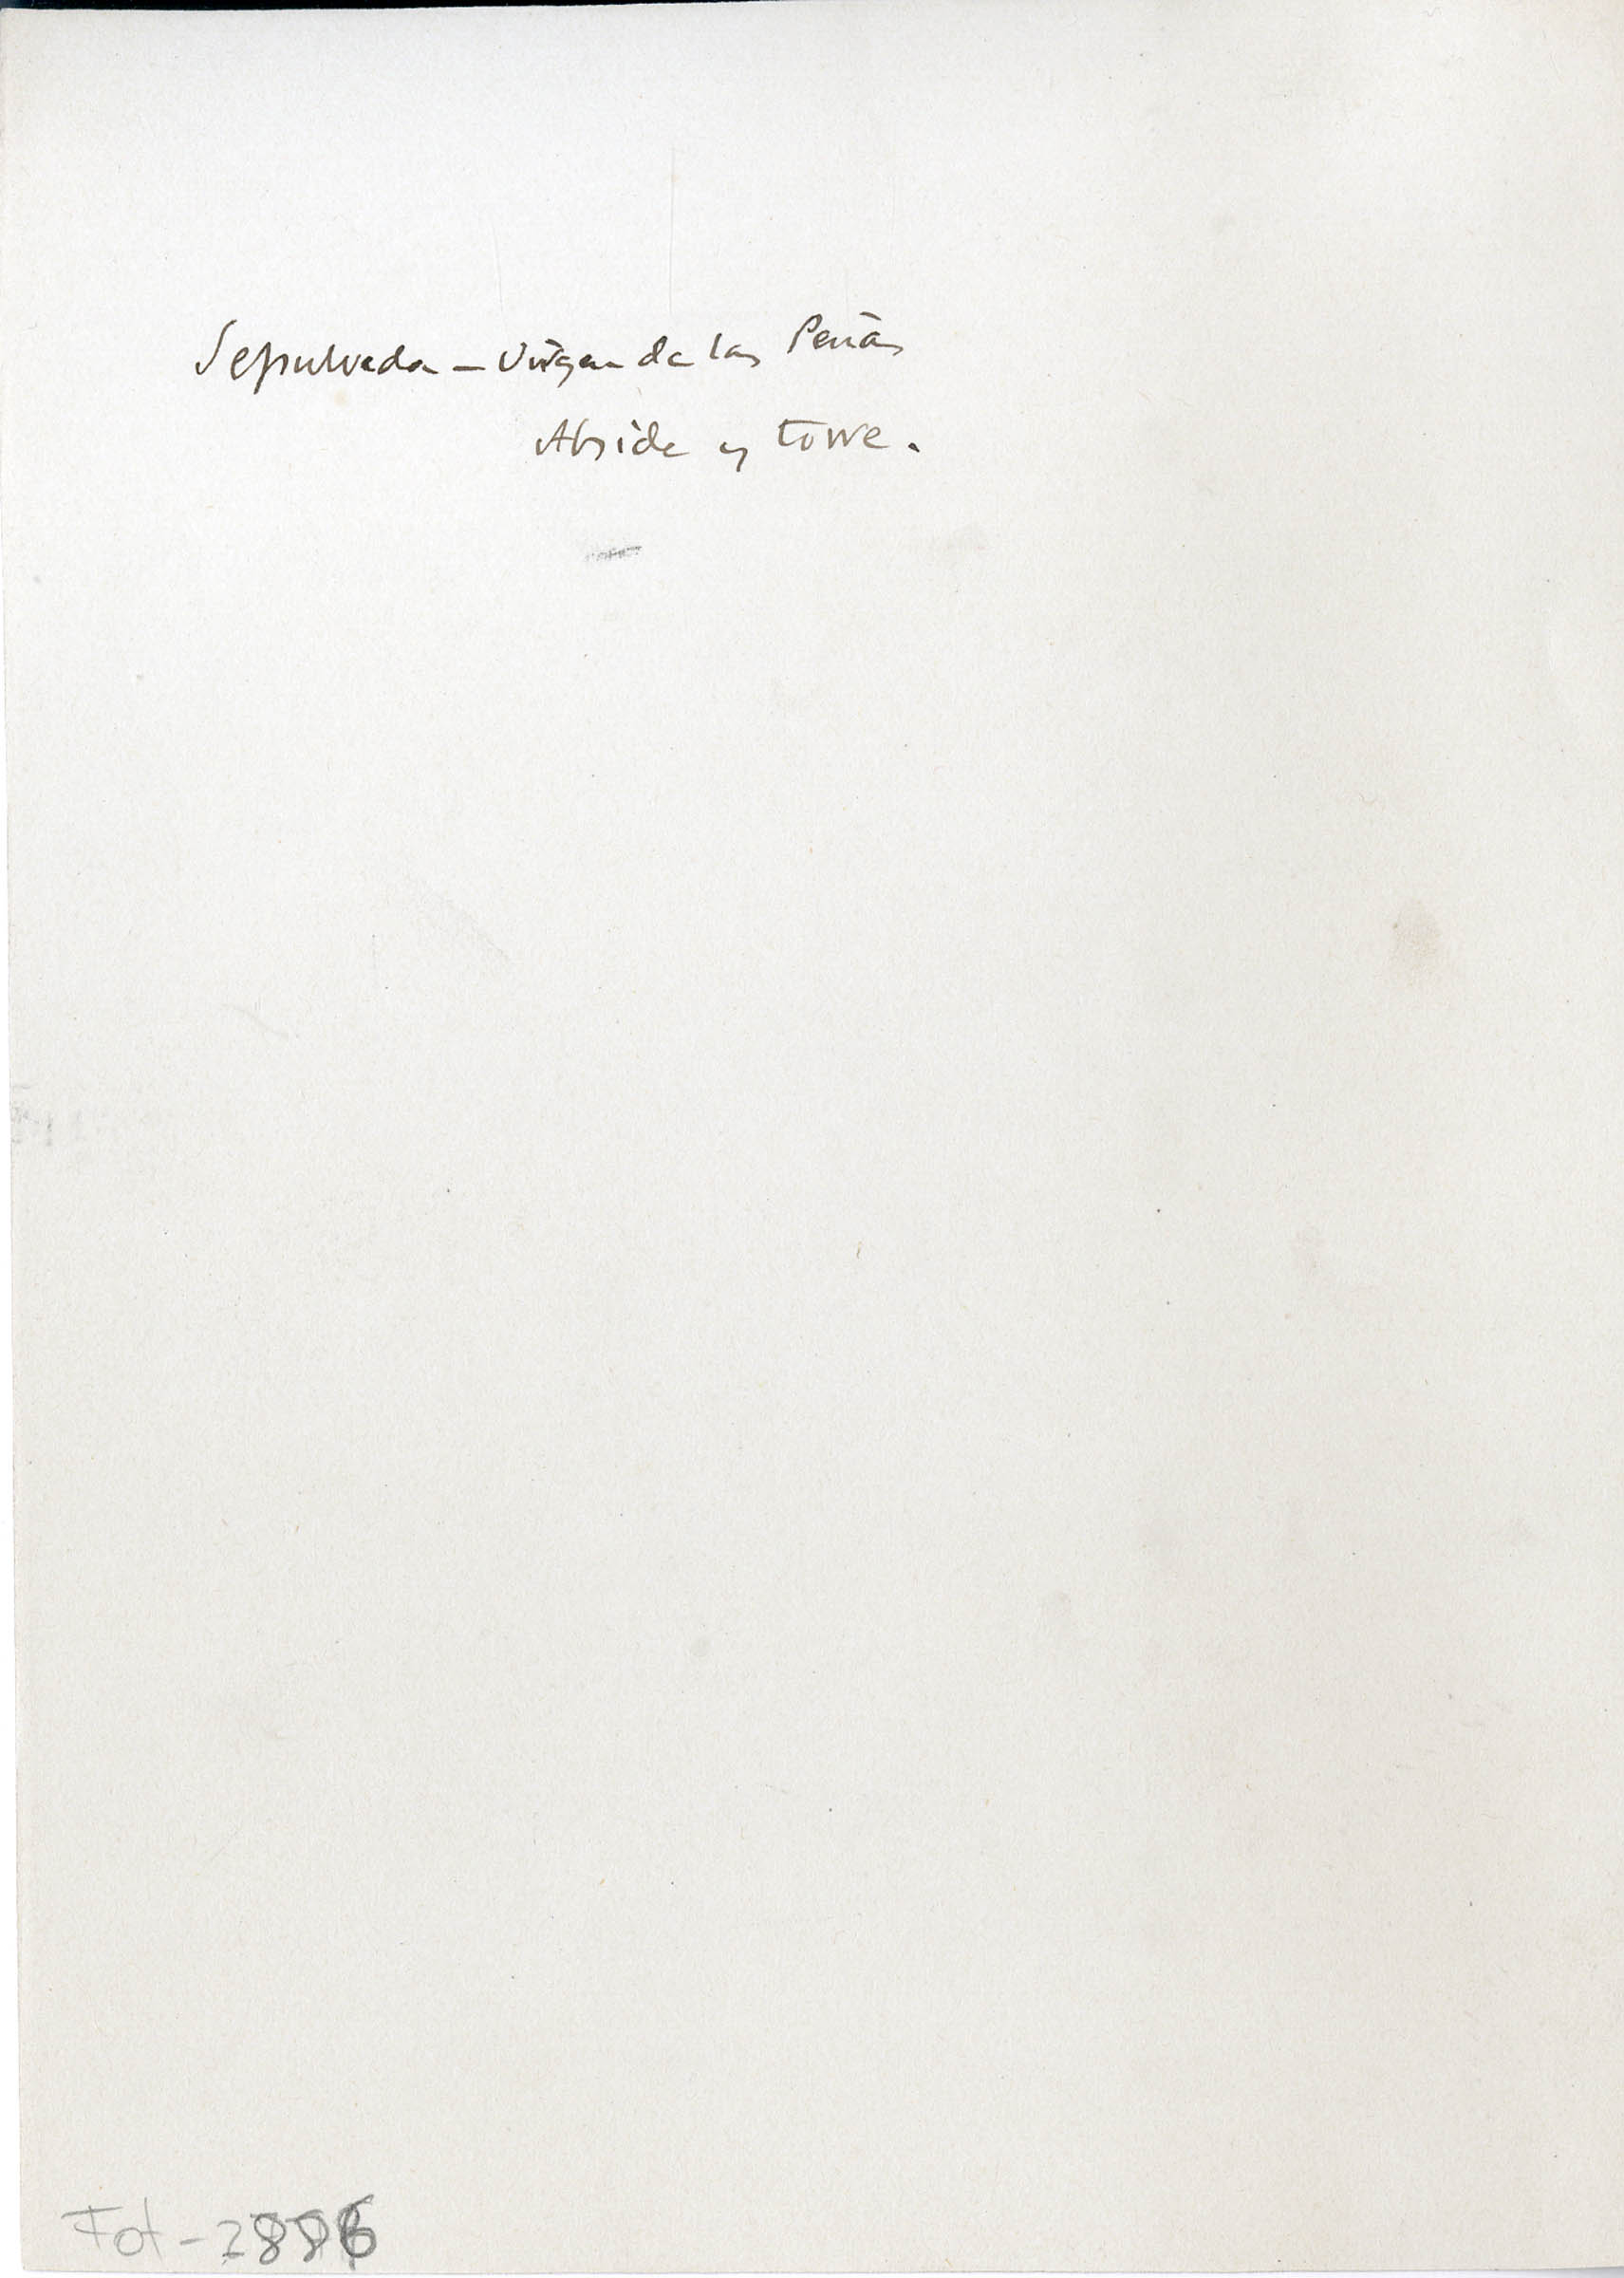 Sepulveda - Virgen de las Peñas
Abside y torre.
Fot-2886